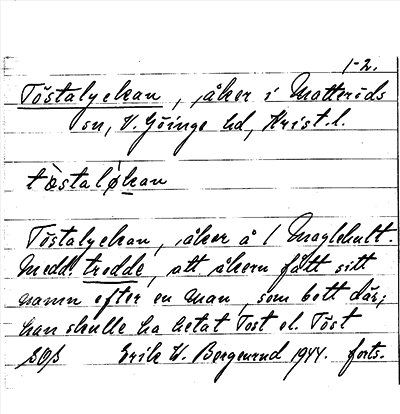 1-2.
Töstalyckan, åker i Matteröds
sn, V. Göinge hd, Krist.l.
tœ̀staløkan
Töstalyckan, åker å 1 Maglehult.
Medd. trodde, att åkern fått sitt
namn efter en man, som bott där;
han skulle ha hetat Tost el. Töst
Erik W. Bergenrud 1944. forts.